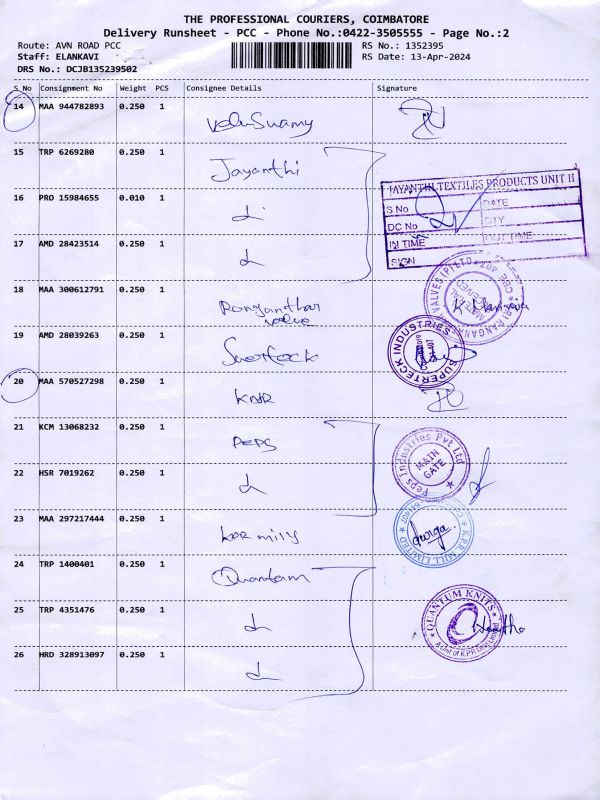 THE PROFESSIONAL COURIERS, COIMBATORE
Delivery Runsheet - PCC - Phone No.:0422-3505555 - Page No.:2
Route: AVN ROAD PCC
RS No.: 1352395
Staff: ELANKAVI
RS Date: 13-Apr-2024
DRS No.: DCJB135239502
S No Consignment No Weight PCS Consignee Details Signature
14 MAA 944782893 0.250 1 VeluSwamy
15 TRP 6269280 0.250 1 Jayanthi
16 PRO 15984655 0.010 1
17 AMD 28423514 0.250 1
JAYANTHI TEXTILES PRODUCTS UNIT II
S No DATE
DC No QTY
IN TIME OUT TIME
SIGN
18 MAA 300612791 0.250 1 Ranganthar
valve
MATERIAL
19 AMD 28039263 0.250 1
SUPERTECK INDUSTRIES
20 MAA 570527298 0.250 1 KNR
21 KCM 13068232 0.250 1 PEPS
Peps Industries Pvt Ltd
MAIN
GATE
22 HSR 7019262 0.250 1
23 MAA 297217444 0.250 1 kpr mills
K.P.R. MILL LIMITED
durga.
24 TRP 1400401 0.250 1 Quantam
25 TRP 4351476 0.250 1
QUANTUM KNITS
26 HRD 328913097 0.250 1